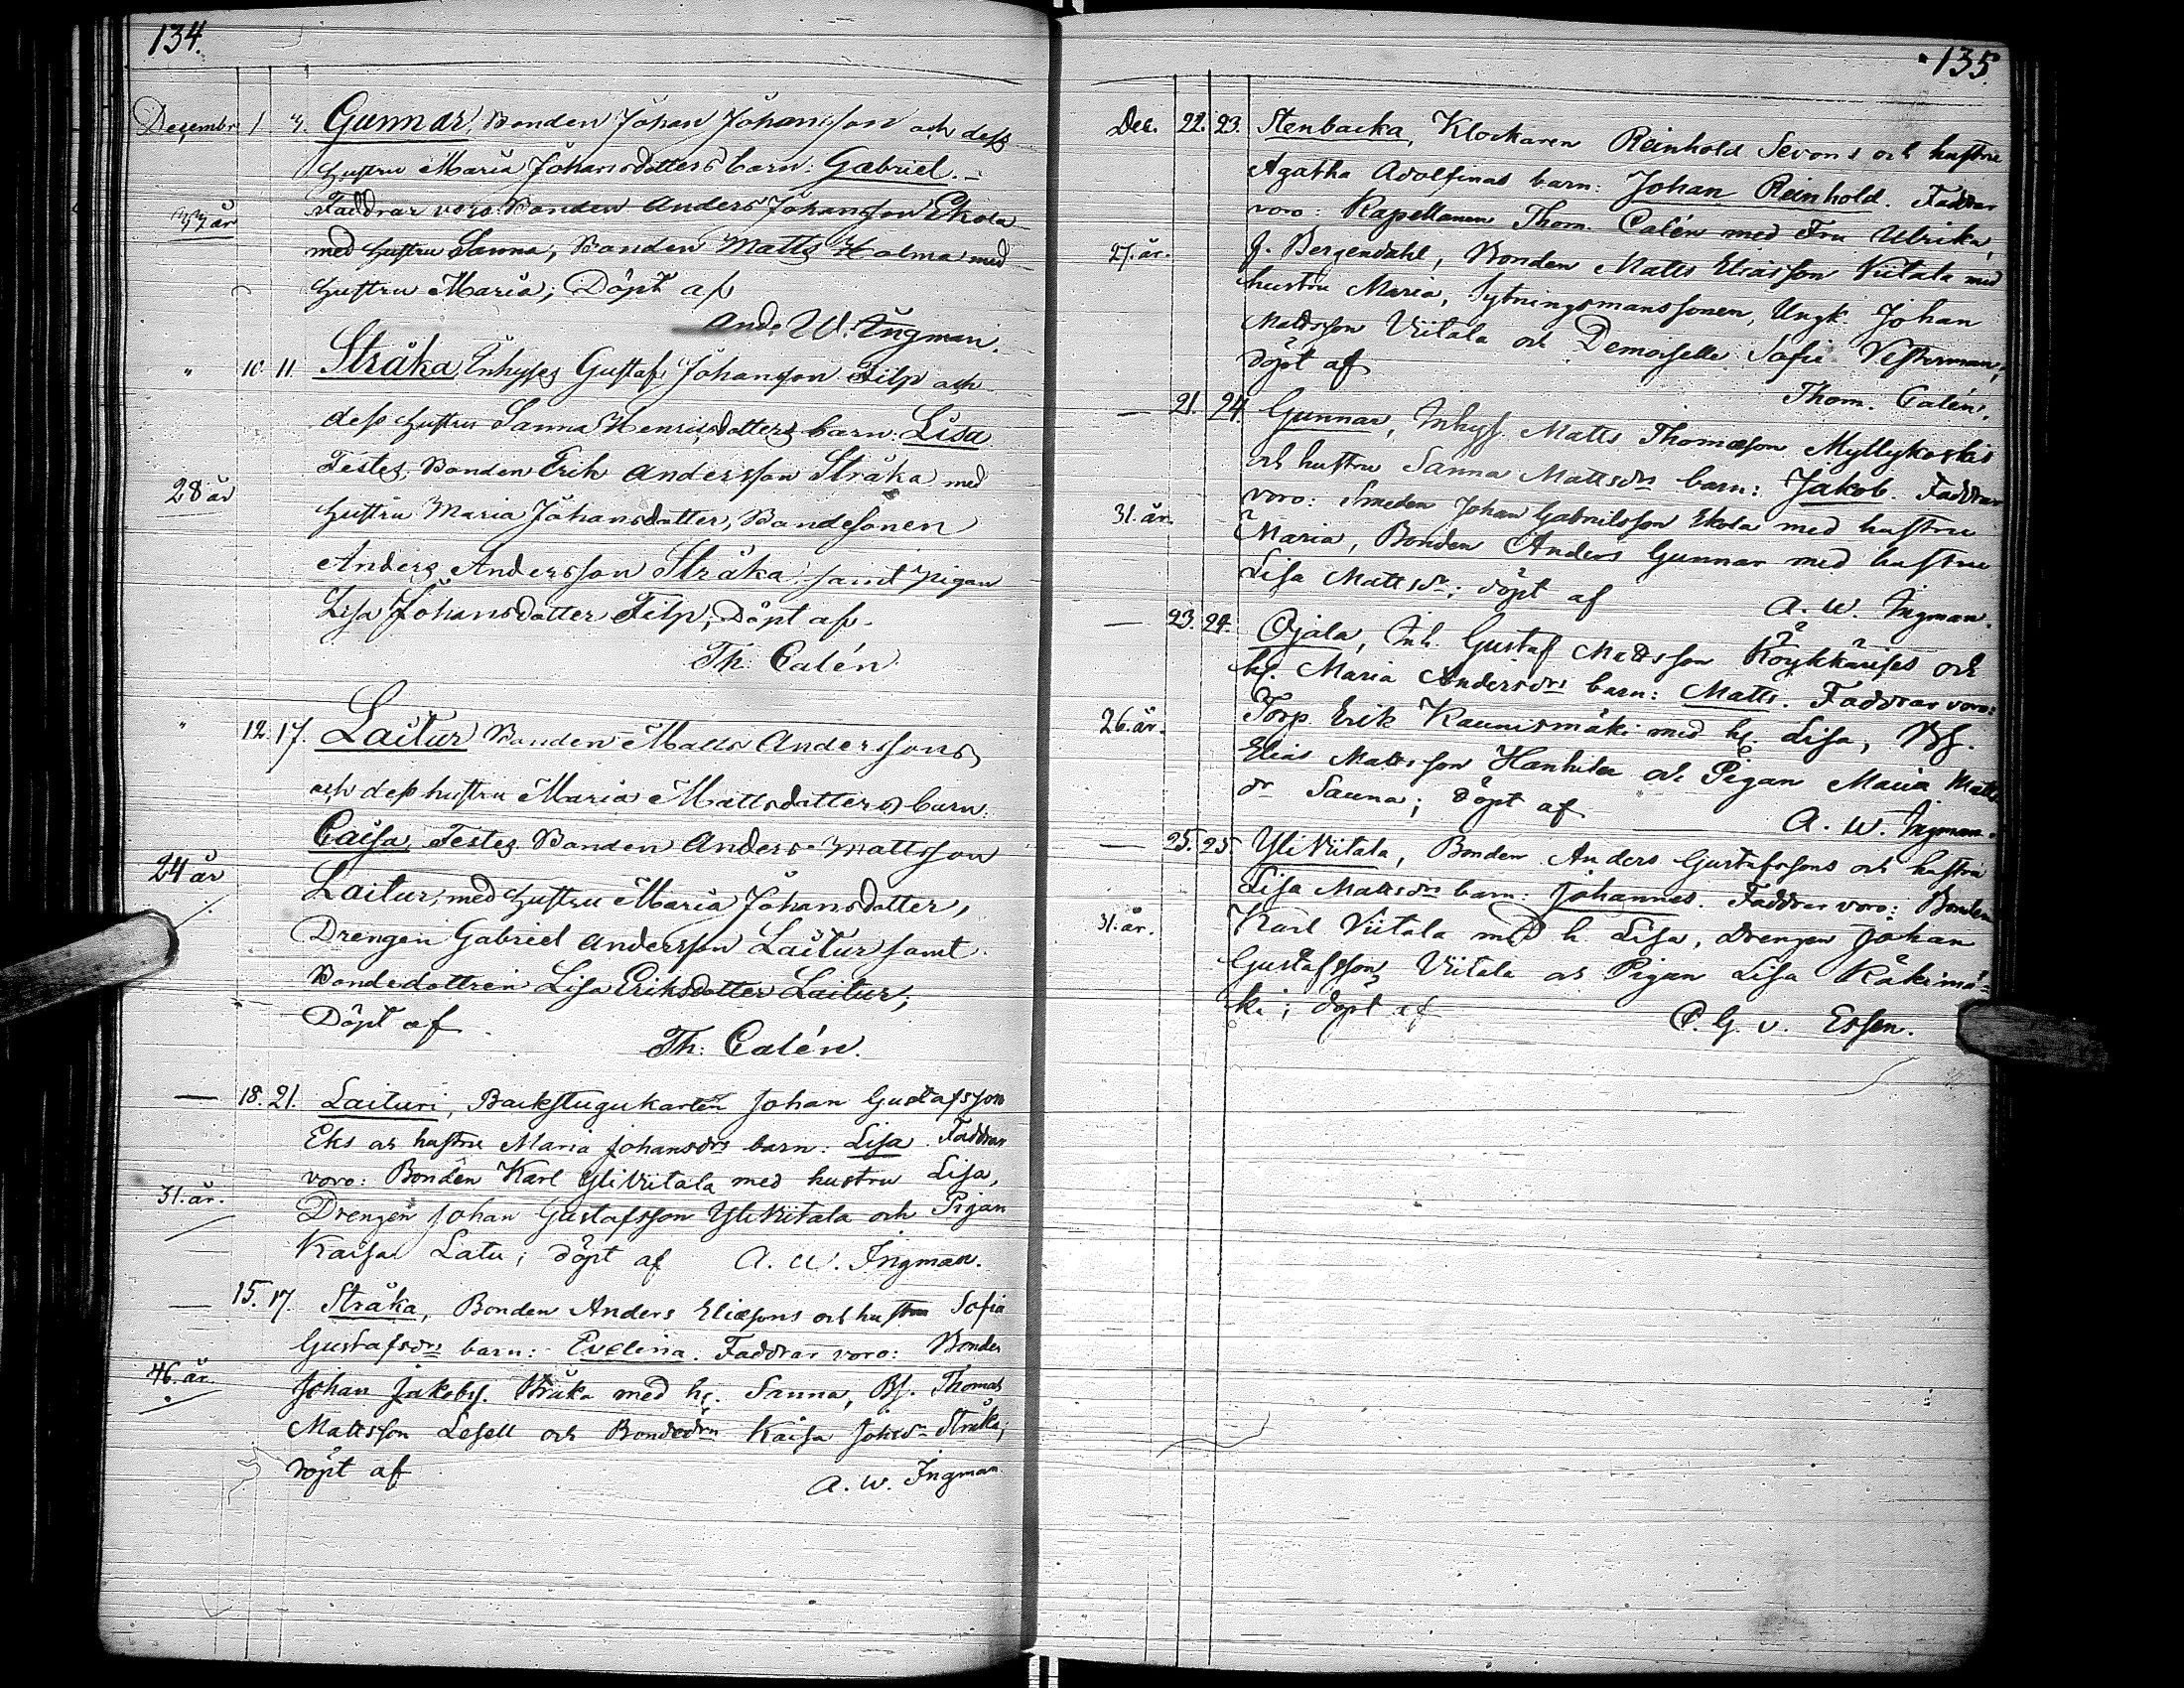 134.
Decembr 1 3. Gunnar, Bonden Johan Johansson och dess
hustru Maria Johansdotters barn: Gabriel. –
Faddrar voro: Bonden Anders Johansson Ekola
33 år
med hustru Sanna, Bonden Matts Holma med
hustru Maria; Döpt af
And. W. Ingman.
" 10 11. Stråka Inhyses Gustaf Johansson Filp och
dess hustru Sanna Henrisdotters barn: Lisa
Testes. Bonden Erik Andersson Stråka med
28 år
hustru Maria Johansdotter, Bondesonen
Anders Andersson Stråka, samt pigan
Lisa Johansdotter Filp; Döpt af.
Th. Calén
" 12. 17. Laitur Bonden Matts Anderssons
och dess hustru Maria Mattsdotters barn:
Caisa, Testes. Bonden Anders Mattsson
24 år
Laitur, med hustru Maria Johansdotter,
Drengen Gabriel Andersson Laitur samt
Bondedottren Lisa Eriksdotter Laitur;
Döpt af
Th: Calén.
— 18. 21. Laituri, Backstugukarlen Johan Gustafsson
Eks och hustru Maria Johansdrs barn: Lisa. Faddrar
voro: Bonden Karl Yliviitala med hustru Lisa,
31. år.
Drengen Johan Gustafsson Yliviitala och Pigan
Kaisa Latu; döpt af A. W. Ingman.
— 15. 17. Stråka, Bonden Anders Eliæsons och hustru Sofia
Gustafsdrs barn: Evelina. Faddrar voro: Bonden
46. år.
Johan Jakobs. Stråka med h. Sanna, Bs. Thomas
Mattsson Lesell och Bondedrn Kaisa Johsdr Stråka;
döpt af
A. W. Ingman
135
Dec. 22. 23. Stenbacka, Klockaren Reinhold Sevons och hustru
Agatha Adolfinas barn: Johan Reinhold. Faddrar
voro: Kapellanen Thom. Calén med Fru Ulrika,
27. år.
f. Bergendahl, Bonden Matts Eliasson Viitala med
hustru Maria, Sytningsmanssonen, Ungk. Johan
Mattsson Viitala och Demoiselle Sofia Vesterman;
döpt af
Thom. Calén.
— 21. 24. Gunnar, Inhys. Matts Thomæson Myllykoskis
och hustru Sanna Mattsdrs barn: Jakob. Faddrar
voro: Smeden Johan Gabrielsson Ekola med hustru
31. år.
Maria, Bonden Anders Gunnar med hustru
Lisa Mattsdr; döpt af
A. W. Ingman.
— 23. 24. Ojala, Inh. Gustaf Mattsson Röykkäises och
h. Maria Andersdrs barn: Matts. Faddrar voro:
26. år.
Torp. Erik Kaunismäki med h. Lisa, Bs.
Elias Mattsson Hanhila och Pigan Maria Matts
dr Sauna; döpt af
A. W. Ingman.
— 25. 25. Yliviitala, Bonden Anders Gustafssons och hustru
Lisa Mattsdrs barn: Johannes. Faddrar voro: Bonden
31. år.
Karl Viitala med h. Lisa, Drengen Johan
Gustafsson Viitala och Pigan Lisa Käkimä-
ki; döpt af
C. G. v. Essen.